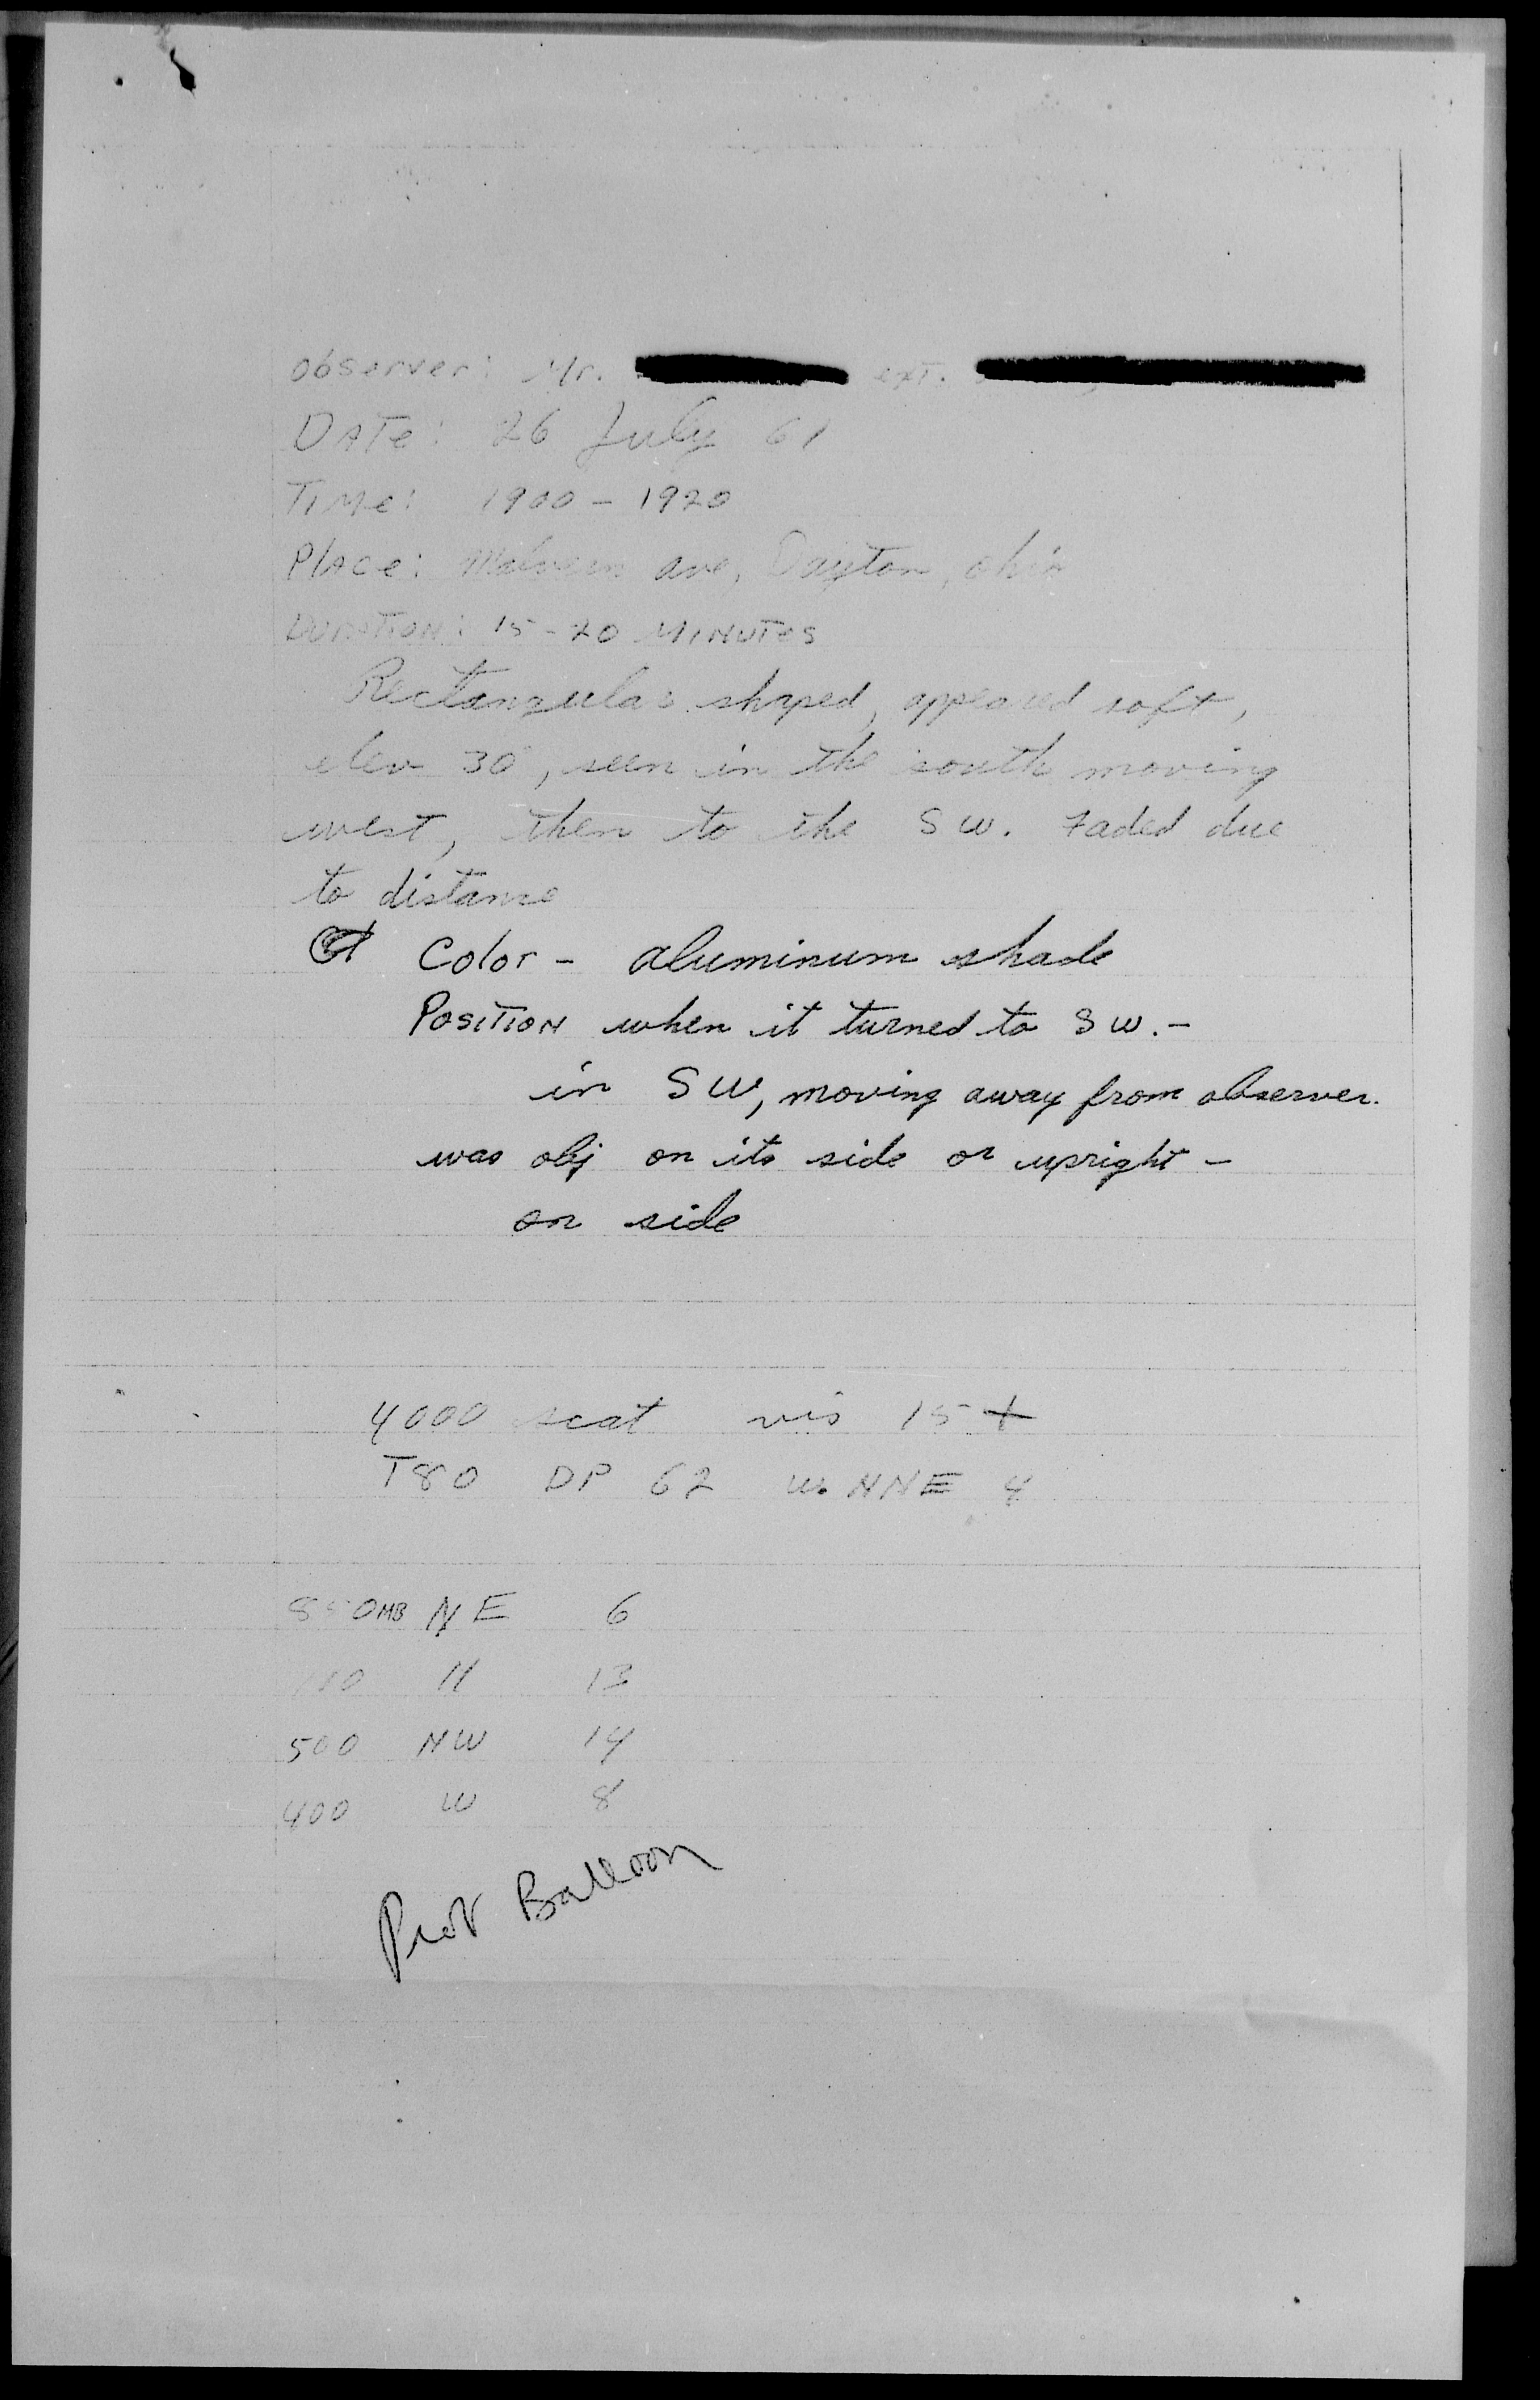 observer: Mr. ext.
DATE: 26 July 61
TIME: 1900 - 1920
PLACE: Malvern ave, Dayton, ohio
DURATION: 15-20 MINUTES
Rectangular shaped, appeared soft,
elev 30°, seen in the south moving
west, then to the SW. Faded due
to distance
Color - aluminum shade
POSITION when it turned to SW. -
in SW, moving away from observer.
was obj on its side or upright -
on side
4000 scat vis 15+
T80 DP 62 W. NNE 4
850MB NE 6
13
500 NW 14
400 W 8
Balloon